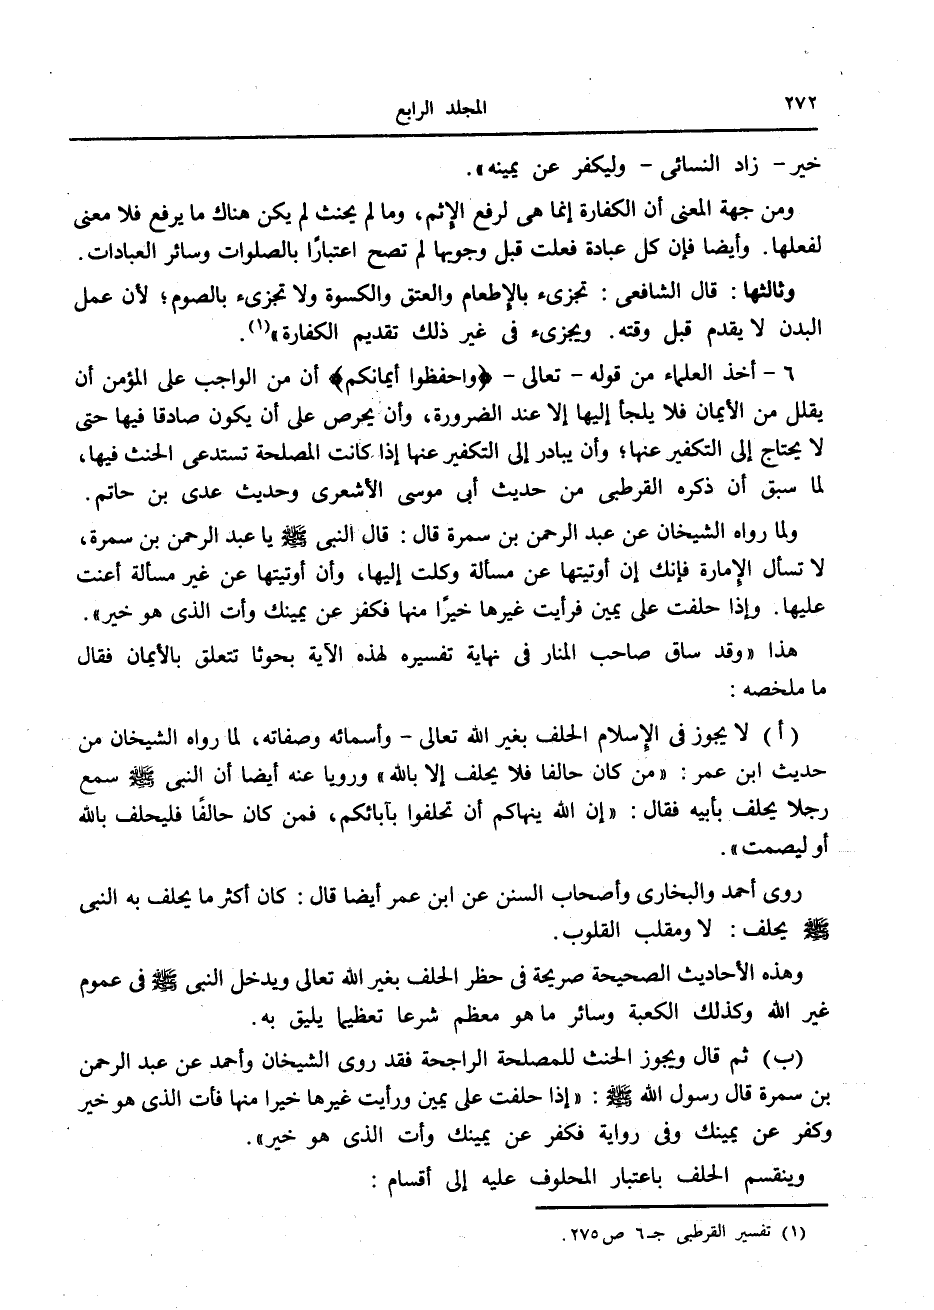 ٢٧٢
المجلد الرابع
خير - زاد النسائى - وليكفر عن يمينه».
ومن جهة المعنى أن الكفارة إنما هى لرفع الإثم، وما لم يحنث لم يكن هناك ما يرفع فلا معنى
لفعلها. وأيضا فإن كل عبادة فعلت قبل وجوبها لم تصح اعتبارًا بالصلوات وسائر العبادات.
وثالثها: قال الشافعى: تجزىء بالإطعام والعتق والكسوة ولا تجزىء بالصوم؛ لأن عمل
البدن لا يقدم قبل وقته. ويجزىء فى غير ذلك تقديم الكفارة»(١).
٦ - أخذ العلماء من قوله - تعالى - ﴿واحفظوا أيمانكم﴾ أن من الواجب على المؤمن أن
يقلل من الأيمان فلا يلجأ إليها إلا عند الضرورة، وأن يحرص على أن يكون صادقا فيها حتى
لا يحتاج إلى التكفير عنها؛ وأن يبادر إلى التكفير عنها إذا كانت المصلحة تستدعى الحنث فيها،
لما سبق أن ذكره القرطبى من حديث أبى موسى الأشعرى وحديث عدى بن حاتم.
ولما رواه الشيخان عن عبد الرحمن بن سمرة قال: قال النبى ﷺ يا عبد الرحمن بن سمرة،
لا تسأل الإمارة فإنك إن أوتيتها عن مسألة وكلت إليها، وأن أوتيتها عن غير مسألة أعنت
عليها. وإذا حلفت على يمين فرأيت غيرها خيرًا منها فكفر عن يمينك وأت الذى هو خير».
هذا «وقد ساق صاحب المنار فى نهاية تفسيره لهذه الآية بحوثا تتعلق بالأيمان فقال
ما ملخصه:
(أ) لا يجوز فى الإسلام الحلف بغير الله تعالى - وأسمائه وصفاته، لما رواه الشيخان من
حديث ابن عمر: «من كان حالفا فلا يحلف إلا بالله» ورويا عنه أيضا أن النبى ﷺ سمع
رجلا يحلف بأبيه فقال: «إن الله ينهاكم أن تحلفوا بآبائكم، فمن كان حالفًا فليحلف بالله
أو ليصمت».
روى أحمد والبخارى وأصحاب السنن عن ابن عمر أيضا قال: كان أكثر ما يحلف به النبى
ﷺ يحلف: لا ومقلب القلوب.
وهذه الأحاديث الصحيحة صريحة فى حظر الحلف بغير الله تعالى ويدخل النبى ﷺ فى عموم
غير الله وكذلك الكعبة وسائر ما هو معظم شرعا تعظيما يليق به.
(ب) ثم قال ويجوز الحنث للمصلحة الراجحة فقد روى الشيخان وأحمد عن عبد الرحمن
بن سمرة قال رسول الله ﷺ: «إذا حلفت على يمين ورأيت غيرها خيرا منها فأت الذى هو خير
وكفر عن يمينك وفى رواية فكفر عن يمينك وأت الذى هو خير».
وينقسم الحلف باعتبار المحلوف عليه إلى أقسام:
(١) تفسير القرطبى جـ٦ ص٢٧٥.